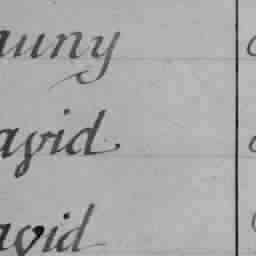 auny
avid
avid